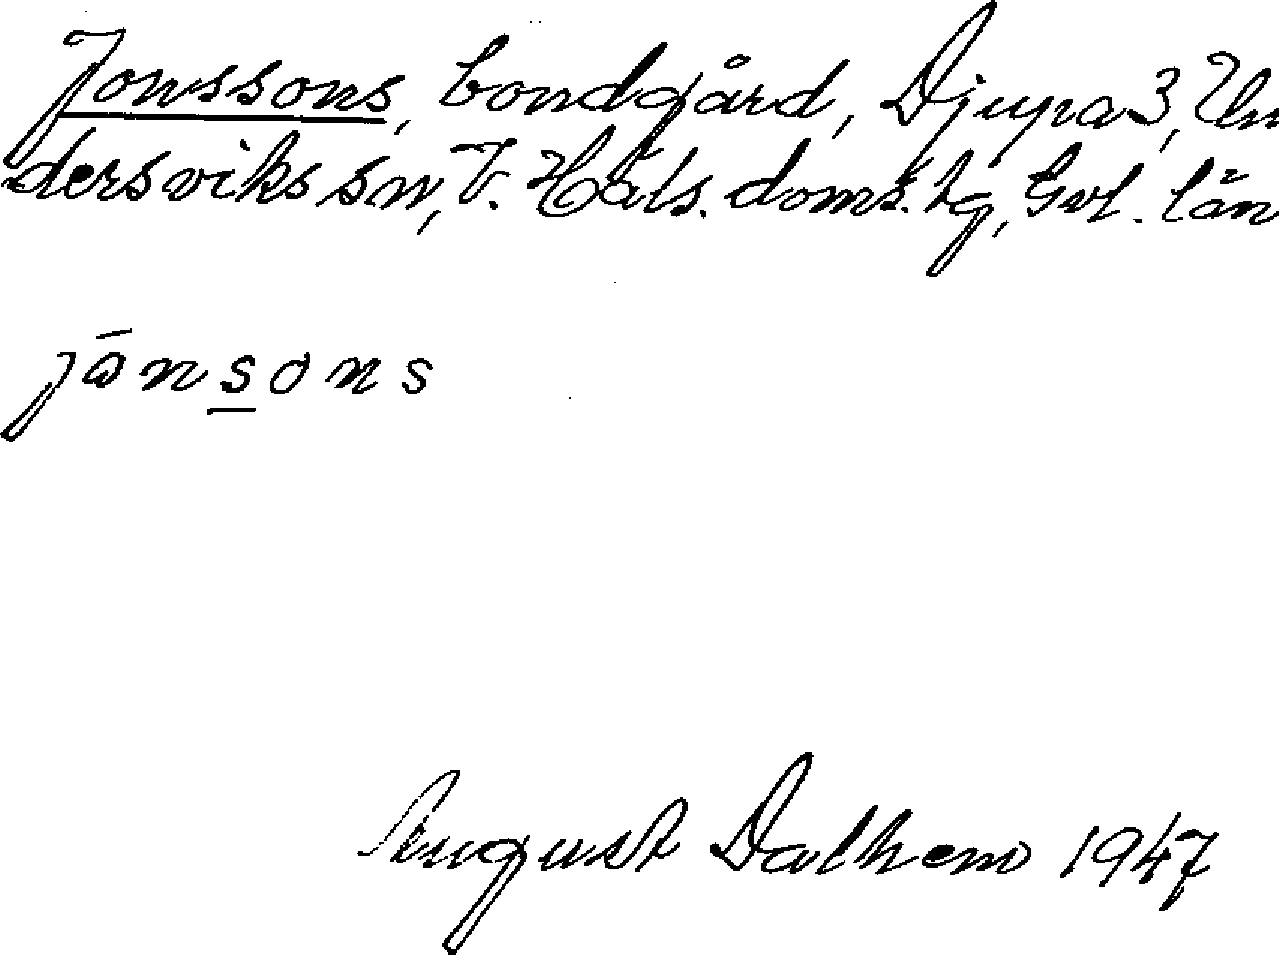 Jonssons, bondgård, Djupa 3, Un
dersviks sn, V. Häls. doms. lg, Gvl. län
jōnsons
August Dalhem 1947